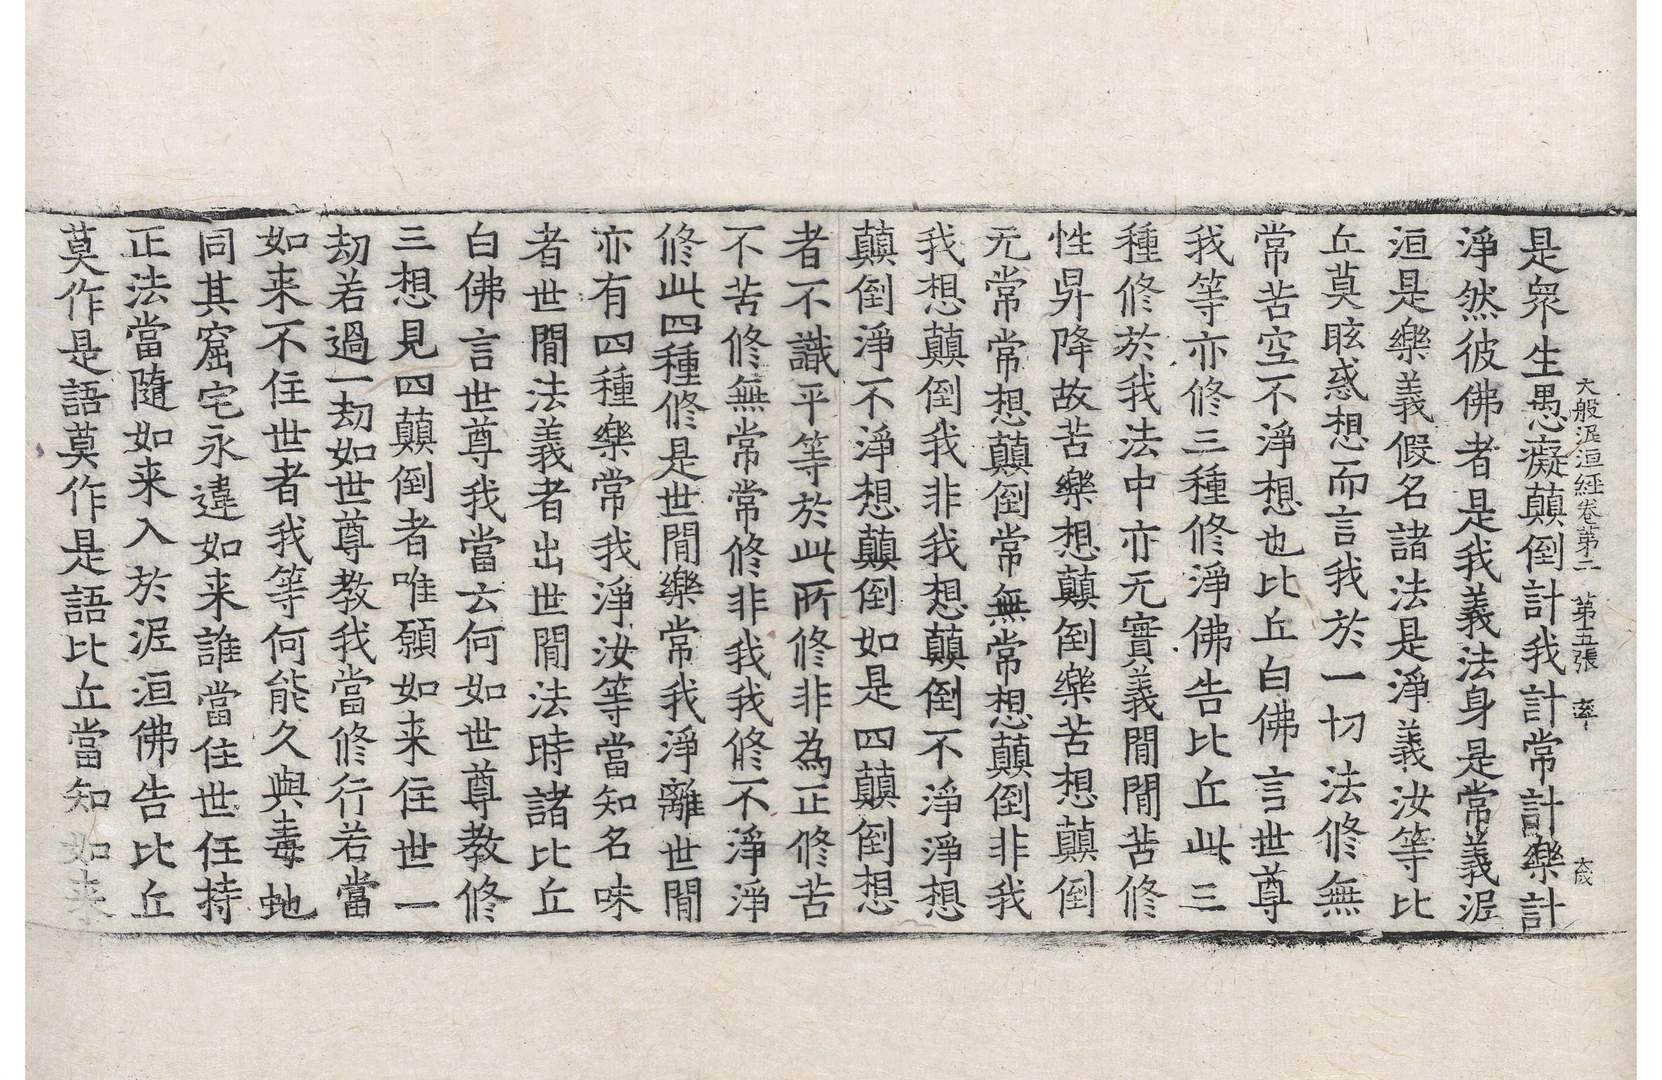 大般泥洹經卷第二　第五張　率　大成
是衆生愚癡顛倒計我計常計樂計
淨然彼佛者是我義法身是常義泥
洹是樂義假名諸法是淨義汝等比
丘莫眩惑想而言我於一切法修無
常苦空不淨想也比丘白佛言世尊
我等亦修三種修淨佛告比丘此三
種修於我法中亦无實義閒閒苦修
性昇降故苦樂想顛倒樂苦想顛倒
无常常想顛倒常無常想顛倒非我
我想顛倒我非我想顛倒不淨淨想
顛倒淨不淨想顛倒如是四顛倒想
者不識平等於此所修非為正修苦
不苦修無常常修非我我修不淨淨
修此四種修是世閒樂常我淨離世閒
亦有四種樂常我淨汝等當知名味
者世閒法義者出世閒法時諸比丘
白佛言世尊我當云何如世尊教修
三想見四顛倒者唯願如来住世一
劫若過一劫如世尊教我當修行若當
如来不住世者我等何能久與毒虵
同其窟宅永違如来誰當住世任持
正法當隨如来入於泥洹佛告比丘
莫作是語莫作是語比丘當知如来